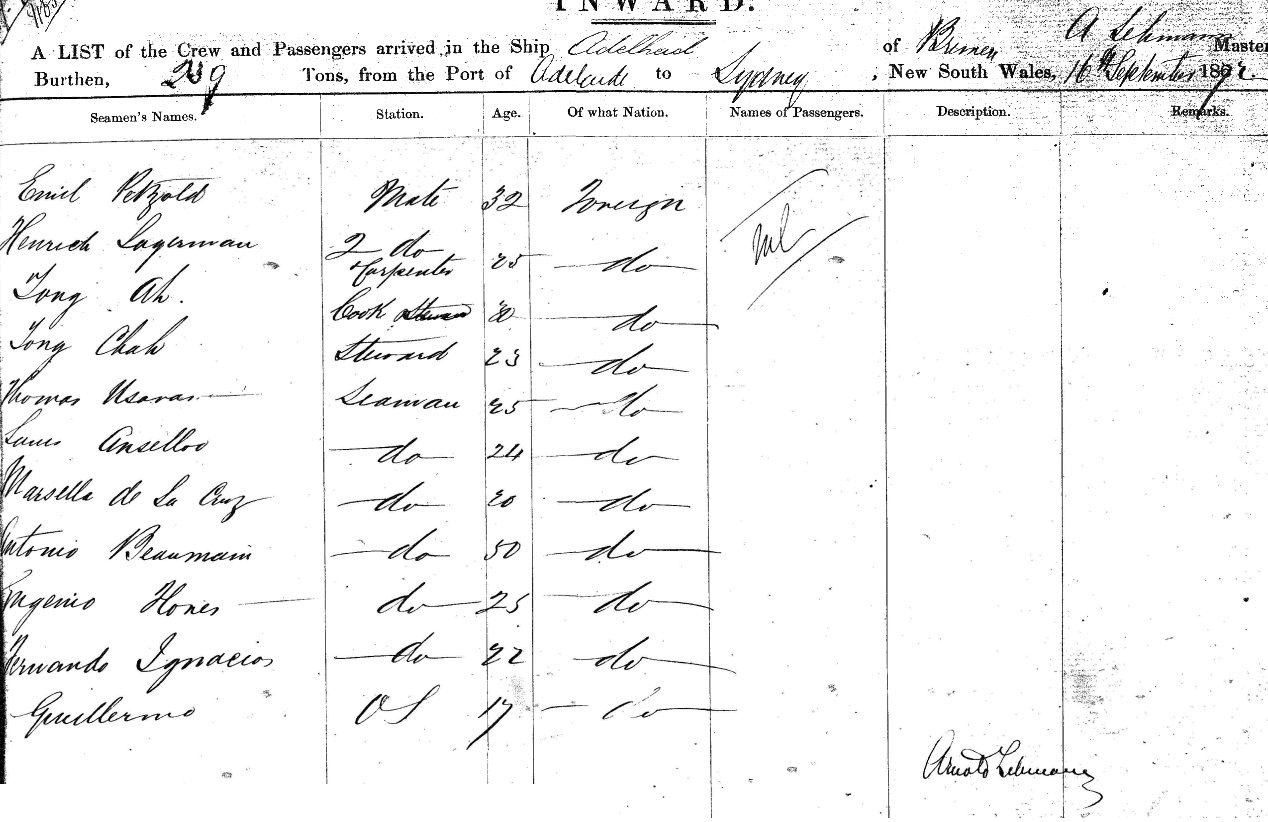 INWARD.
A LIST of the Crew and Passengers arrived in the Ship Adelheid of Bremen A Lehmann Master
Burthen, Tons, from the Port of Adelaide to Sydney, New South Wales, 16th September 1872.
Seamen's Names. Station. Age. Of what Nation. Names of Passengers. Description. Remarks.
Emil Petzold Mate 32 Foreign
Henrich Lagerman 2 do Carpenter 25 do
Tong Ah. Cook do
Tong Chah Steward 23 do
Thomas Seaman 25 do
Anselloo do 24 do
Marsella de La Cruz do 20 do
Antonio Beaumain do 50 do
Eugenio Hones do 25 do
Fernando Ignacios do 22 do
Guillermo OS 17 do
nil
Arnold Lehmann